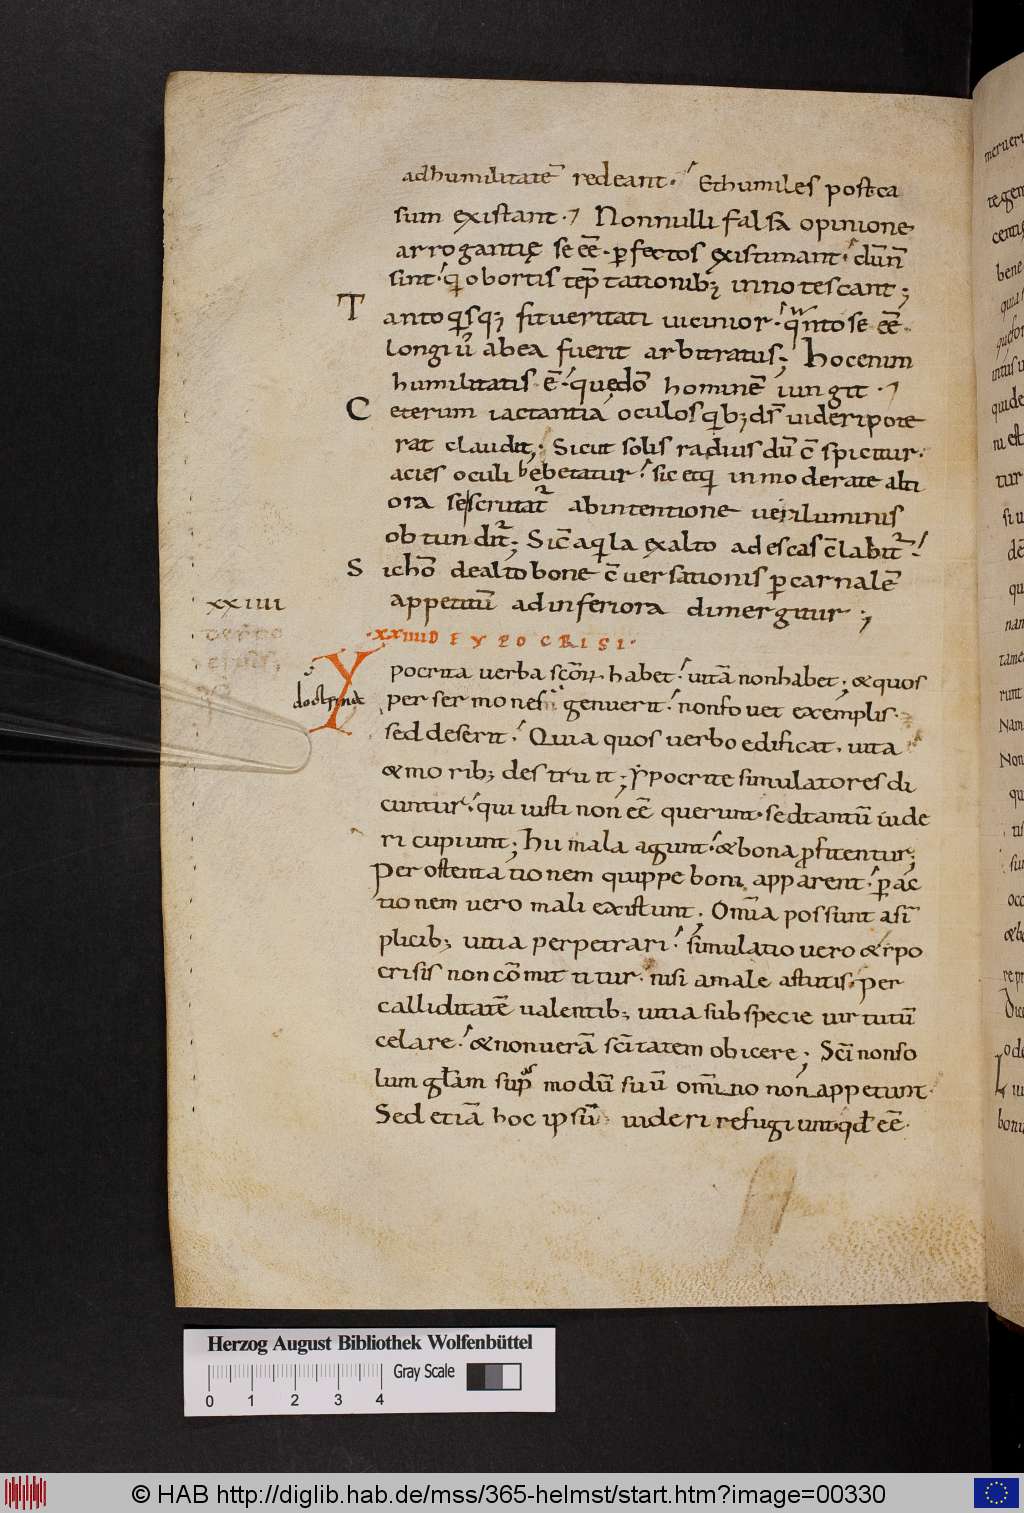 adhumilitatē redeant. Ethumiles postca
sum existant. Nonnulli falsa opinione
arrogantię se eē. pfectos existimant. dūn̄
sint. qi obortis tēptationib; innotescant;
T antoqisq; fit veritati vicinior. qntose eē.
longiu abea fuerit arbitratus; hocenim
humilitatis ē. quędō hominē iungit.
C eterum iactantiā oculosqib; ds̄ videripote
rat claudit; Sicut solis radius dū c̄spicitur.
acies oculi hebetatur. sic etqi inmoderate alti
ora sescrutat abintentione veriluminis
obtundit; Sic̄ aqila exalto adescas c̄labit
S ichō dealtobone c̄versationis pcarnalē
appetitū adinferiora dimergitur;
xxiiii
.xxiiii D E Y P O C R I S I.
Y pocrita verba scōꝝ habet. vitā nonhabet. &quos
doctrinae
persermones genuerit. nonfovet exemplis.
sed deserit. Quia quos verbo edificat. vita
&morib; destruit; Ypocrite simulatores di
cuntur. qui iusti non eē querunt. sedtantū vide
ri cupiunt; hii mala agunt. &bona pfitentur;
Per ostentationem quippe boni apparent. pac
tionem vero mali existunt. Om̄ia possunt asī
plicib; vitia perpetrari. simulatio vero &ypo
crisis non cōmittitur. nisi amale astutis. per
calliditatē valentib; vitia subspecie virtutū
celare. &nonverā scītatem obicere; Scī nonso
lum glām suprͣ modū suū omīno non appetunt.
Sed etiā hoc ipsū videri refugiuntqd eē.
Herzog August Bibliothek Wolfenbüttel
Gray Scale
0 1 2 3 4
© HAB http://diglib.hab.de/mss/365-helmst/start.htm?image=00330